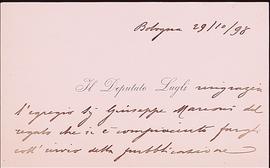 Bologna 29/10/98
Il Deputato Lugli ringrazia
l'egregio Sig Giuseppe Marconi del
regalo che si è compiaciuto fargli
coll' invio della pubblicazione